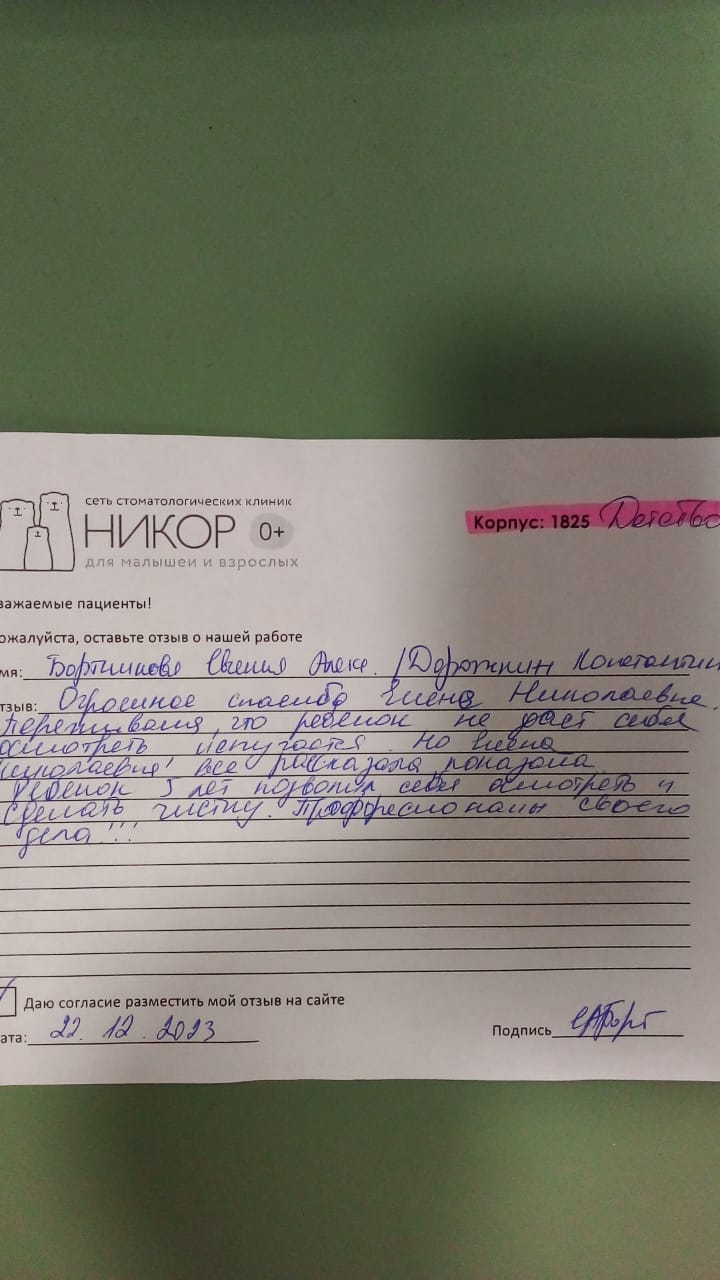 сеть стоматологических клиник
НИКОР 0+
для малышей и взрослых
Корпус: 1825 Детство
важаемые пациенты!
ожалуйста, оставьте отзыв о нашей работе
мя: Евгения Алекс. /Дорожкин Константин
тзыв: Огромное спасибо Елена Николаевне.
Переживала, что ребенок не даст себя
осмотреть испугается. Но Елена
Николаевна все рассказала показала
Ребенок 5 лет позволил себя осмотреть и
сделать чистку. Профессионалы своего
дела!!!
Даю согласие разместить мой отзыв на сайте
ата: 22.12.2023
Подпись